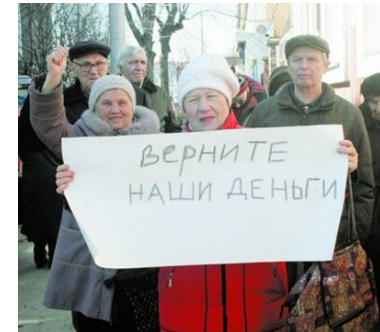 Верните
наши деньги